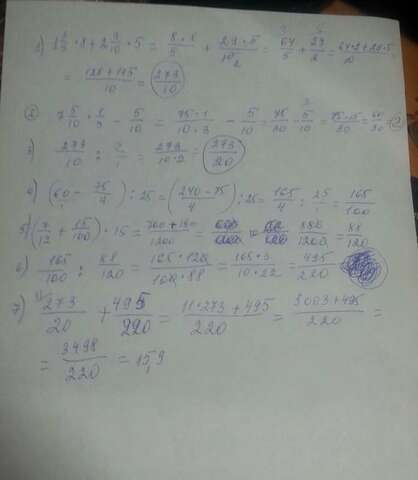 1) 1 3/5 · 8 + 2 9/10 · 5 = 8·8/5 + 29·5/10 = 64/5 + 29/2 = 64·2+29·5/10
= 128+145/10 = 273/10
2) 7 5/10 · 1/3 − 5/10 = 75·1/10·3 − 5/10 = 75/30 − 5/10 = 75-15/30 = 60/30 = 2
3) 273/10 : 2/1 = 273/10·2 = 273/20
4) (60 − 75/4) : 25 = (240-75/4) : 25 = 165/4 : 25 = 165/100
5) (7/12 + 15/100) · 15 = 880/1200 = 88/120
6) 165/100 : 88/120 = 165·120/100·88 = 165·3/10·22 = 495/220
7) 273/20 + 495/220 = 11·273+495/220 = 3003+495/220 =
= 3498/220 = 15,9